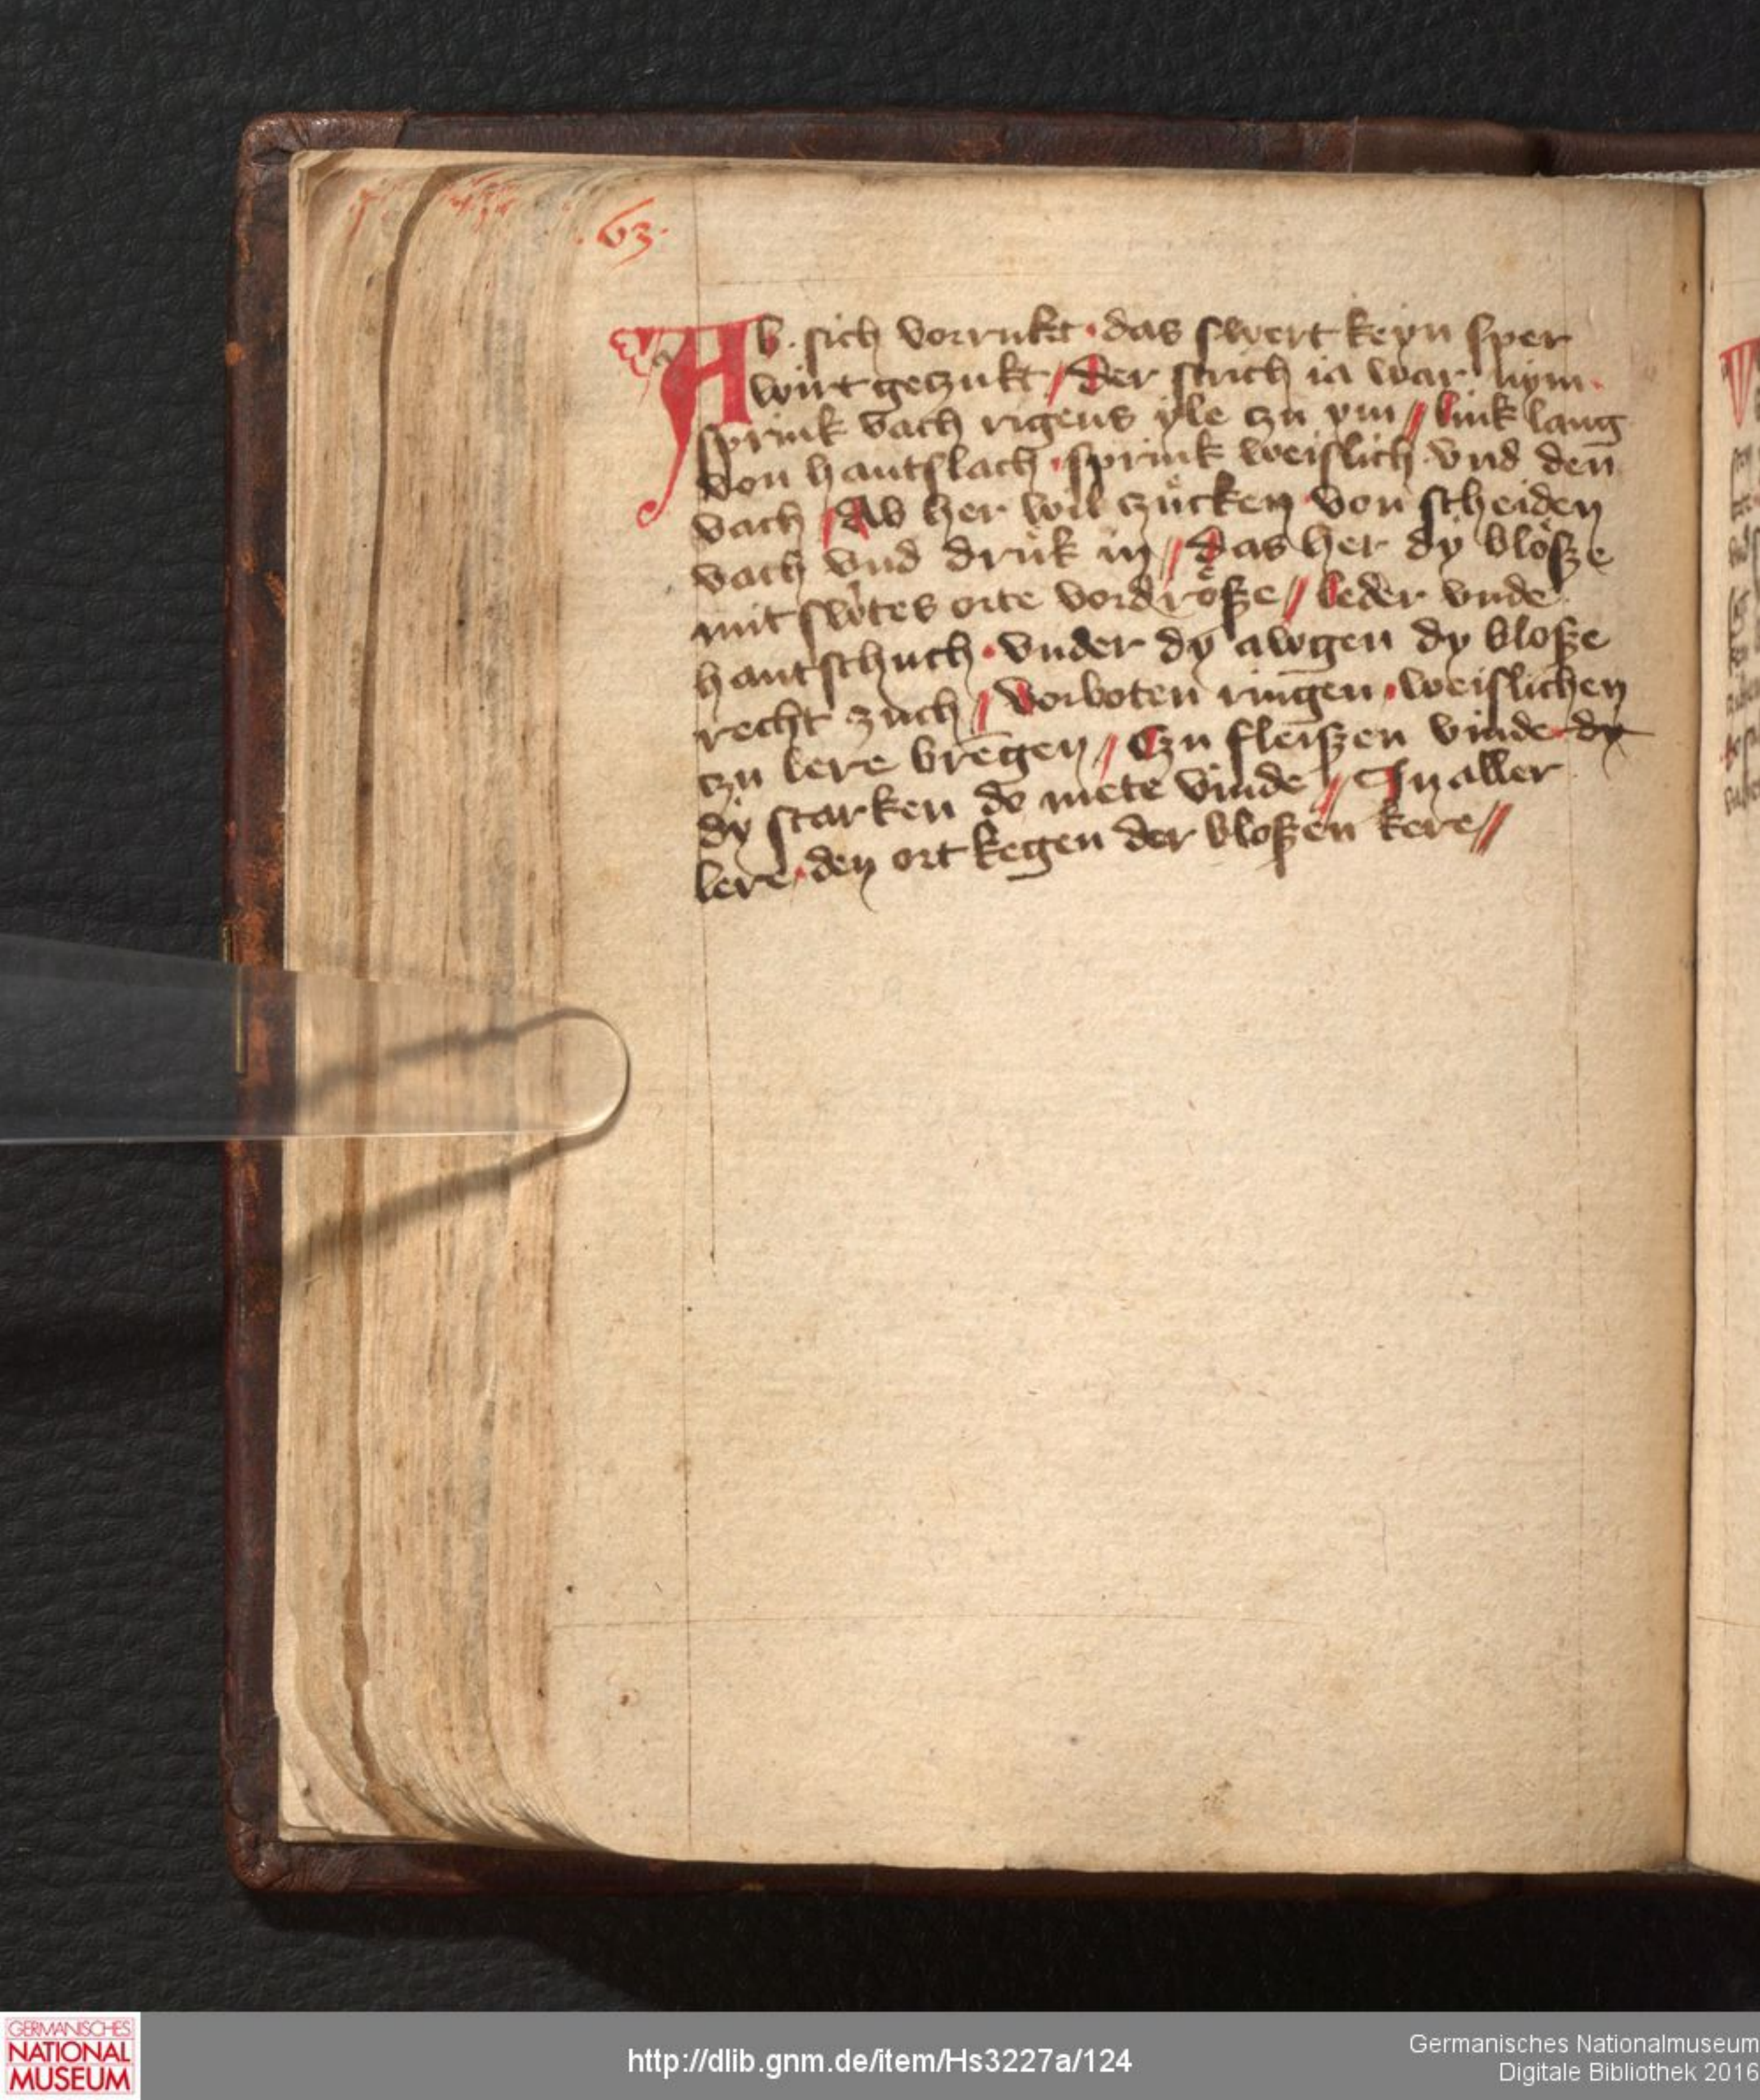 .63.
Ab · sich vorrukt · das swert keyn sper
wirt geczukt / Der strich ia war nym ·
sprink vach ringens yle czu ym // link lang
von hantslach · sprink weislich · vnd den̄
vach / Ab her wil czücken · von scheiden
vach vnd drük in // das her dy blöße
mit swtes orte vordröße // leder vnde
hantschuch · vnder dy awgen dy bloße
recht zuch / Vorboten ringen · weislichen
czu lere brēgen / Czu fleißen vinde dy
dy starken do mete vinde // In aller
lere · den ort kegen der bloßen kere //
GERMANISCHES
NATIONAL
MUSEUM
http://dlib.gnm.de/item/Hs3227a/124
Germanisches Nationalmuseum
Digitale Bibliothek 2016